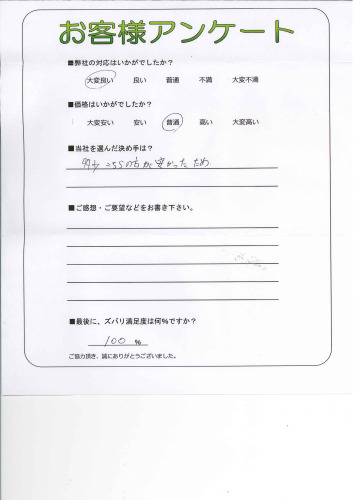 お客様アンケート
■弊社の対応はいかがでしたか?
大変良い 良い 普通 不満 大変不満
■価格はいかがでしたか?
大変安い 安い 普通 高い 大変高い
■当社を選んだ決め手は?
多少こちらの方が安かったため
■ご感想・ご要望などをお書き下さい。
■最後に、ズバリ満足度は何%ですか?
100 %
ご協力頂き、誠にありがとうございました。